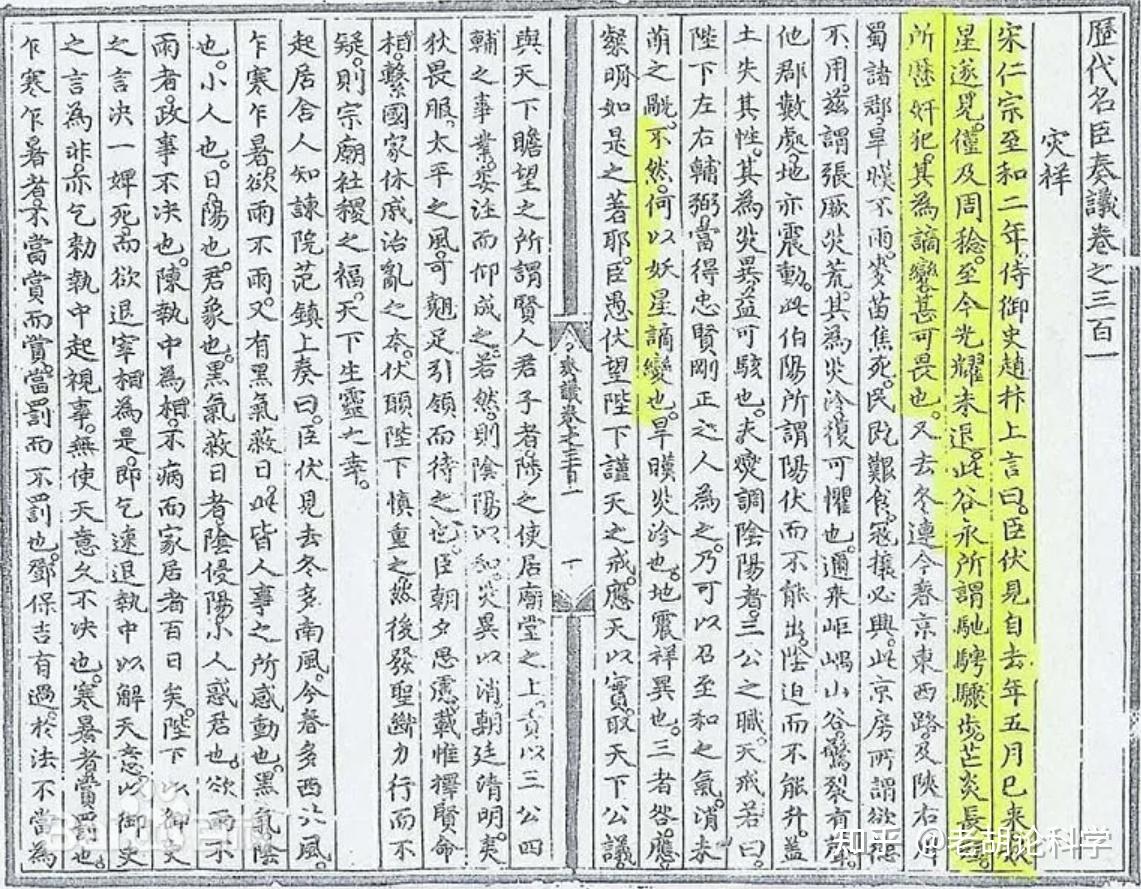 歷代名臣奏議卷之三百一
災祥
宋仁宗至和二年。侍御史趙抃上言曰。臣伏見自去年五月已來妖
星遂見。僅及周稔。至今光耀未退。此谷永所謂馳騁驟步。芒炎長
所歷奸犯。其為謫變甚可畏也。又去冬連今春。京東西路及陝右
蜀諸郡旱暵不雨。麥苗焦死。民既艱食。寇攘必興。此京房所謂欲德
不用。茲謂張厥災荒。其為災沴。復可懼也。邇來岠嵎山谷。驚裂有
他郡數處。地亦震動。此伯陽所謂陽伏而不能出。陰迫而不能升。蓋
土失其性。其為災異。益可駭也。夫燮調陰陽者。三公之職。天戒若曰。
陛下左右輔弼。當得忠賢剛正之人為之。乃可以召至和之氣。消未
萌之。不然。何以妖星謫變也。旱暵災沴也。地震祥異也。三者咎應。
粲明如是之著耶。臣愚伏望陛下謹天之戒。應天以實。取天下公議
奏議卷之三百一
一
與天下瞻望之所謂賢人君子者。陟之使居廟堂之上。責以三公四
輔之事業。安注而仰成之。若然。則陰陽以和。災異以消。朝廷清明。夷
狄畏服。太平之風。可翹足引領而待之。臣朝夕思慮。載惟擇賢命
相。繫國家休戚治亂之本。伏願陛下慎重之。然後發聖斷力行而不
疑。則宗廟社稷之福。天下生靈之幸。
起居舍人知諫院范鎮上奏曰。臣伏見去冬多南風。今春多西北風。
乍寒乍暑。欲雨不雨。又有黑氣蔽日。此皆人事之所感動也。黑氣陰
也。小人也。日陽也。君象也。黑氣蔽日者。陰侵陽。小人惑君也。欲雨不
雨者。政事不決也。陳執中為相。不病而家居者百日矣。陛下以御史
之言決一婢死。而欲退宰相為是。即乞速退執中。以解天意。以御史
之言為非。亦乞勑執中起視事。無使天意久不決也。寒暑者。賞罰也。
乍寒乍暑者。不當賞而賞。當罰而不罰也。鄧保吉有過。於法不當為
Bai百科
知乎 @老胡论科学